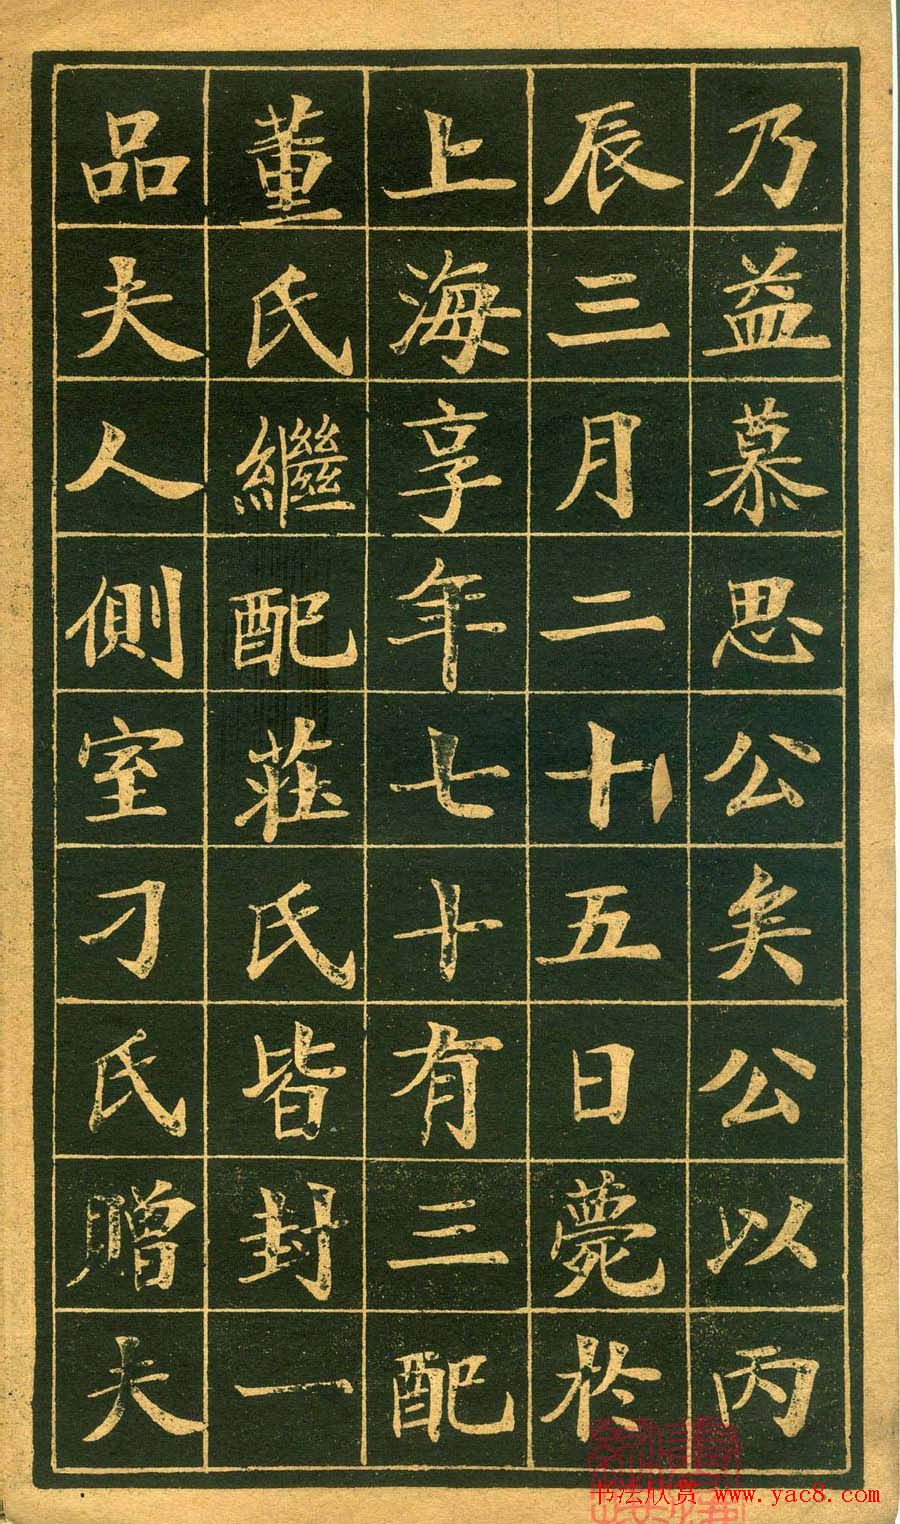 乃益慕思公矣公以丙
辰三月二十五日薨於
上海享年七十有三配
董氏繼配莊氏皆封一
品夫人側室刁氏贈夫
书法欣赏 www.yac8.com